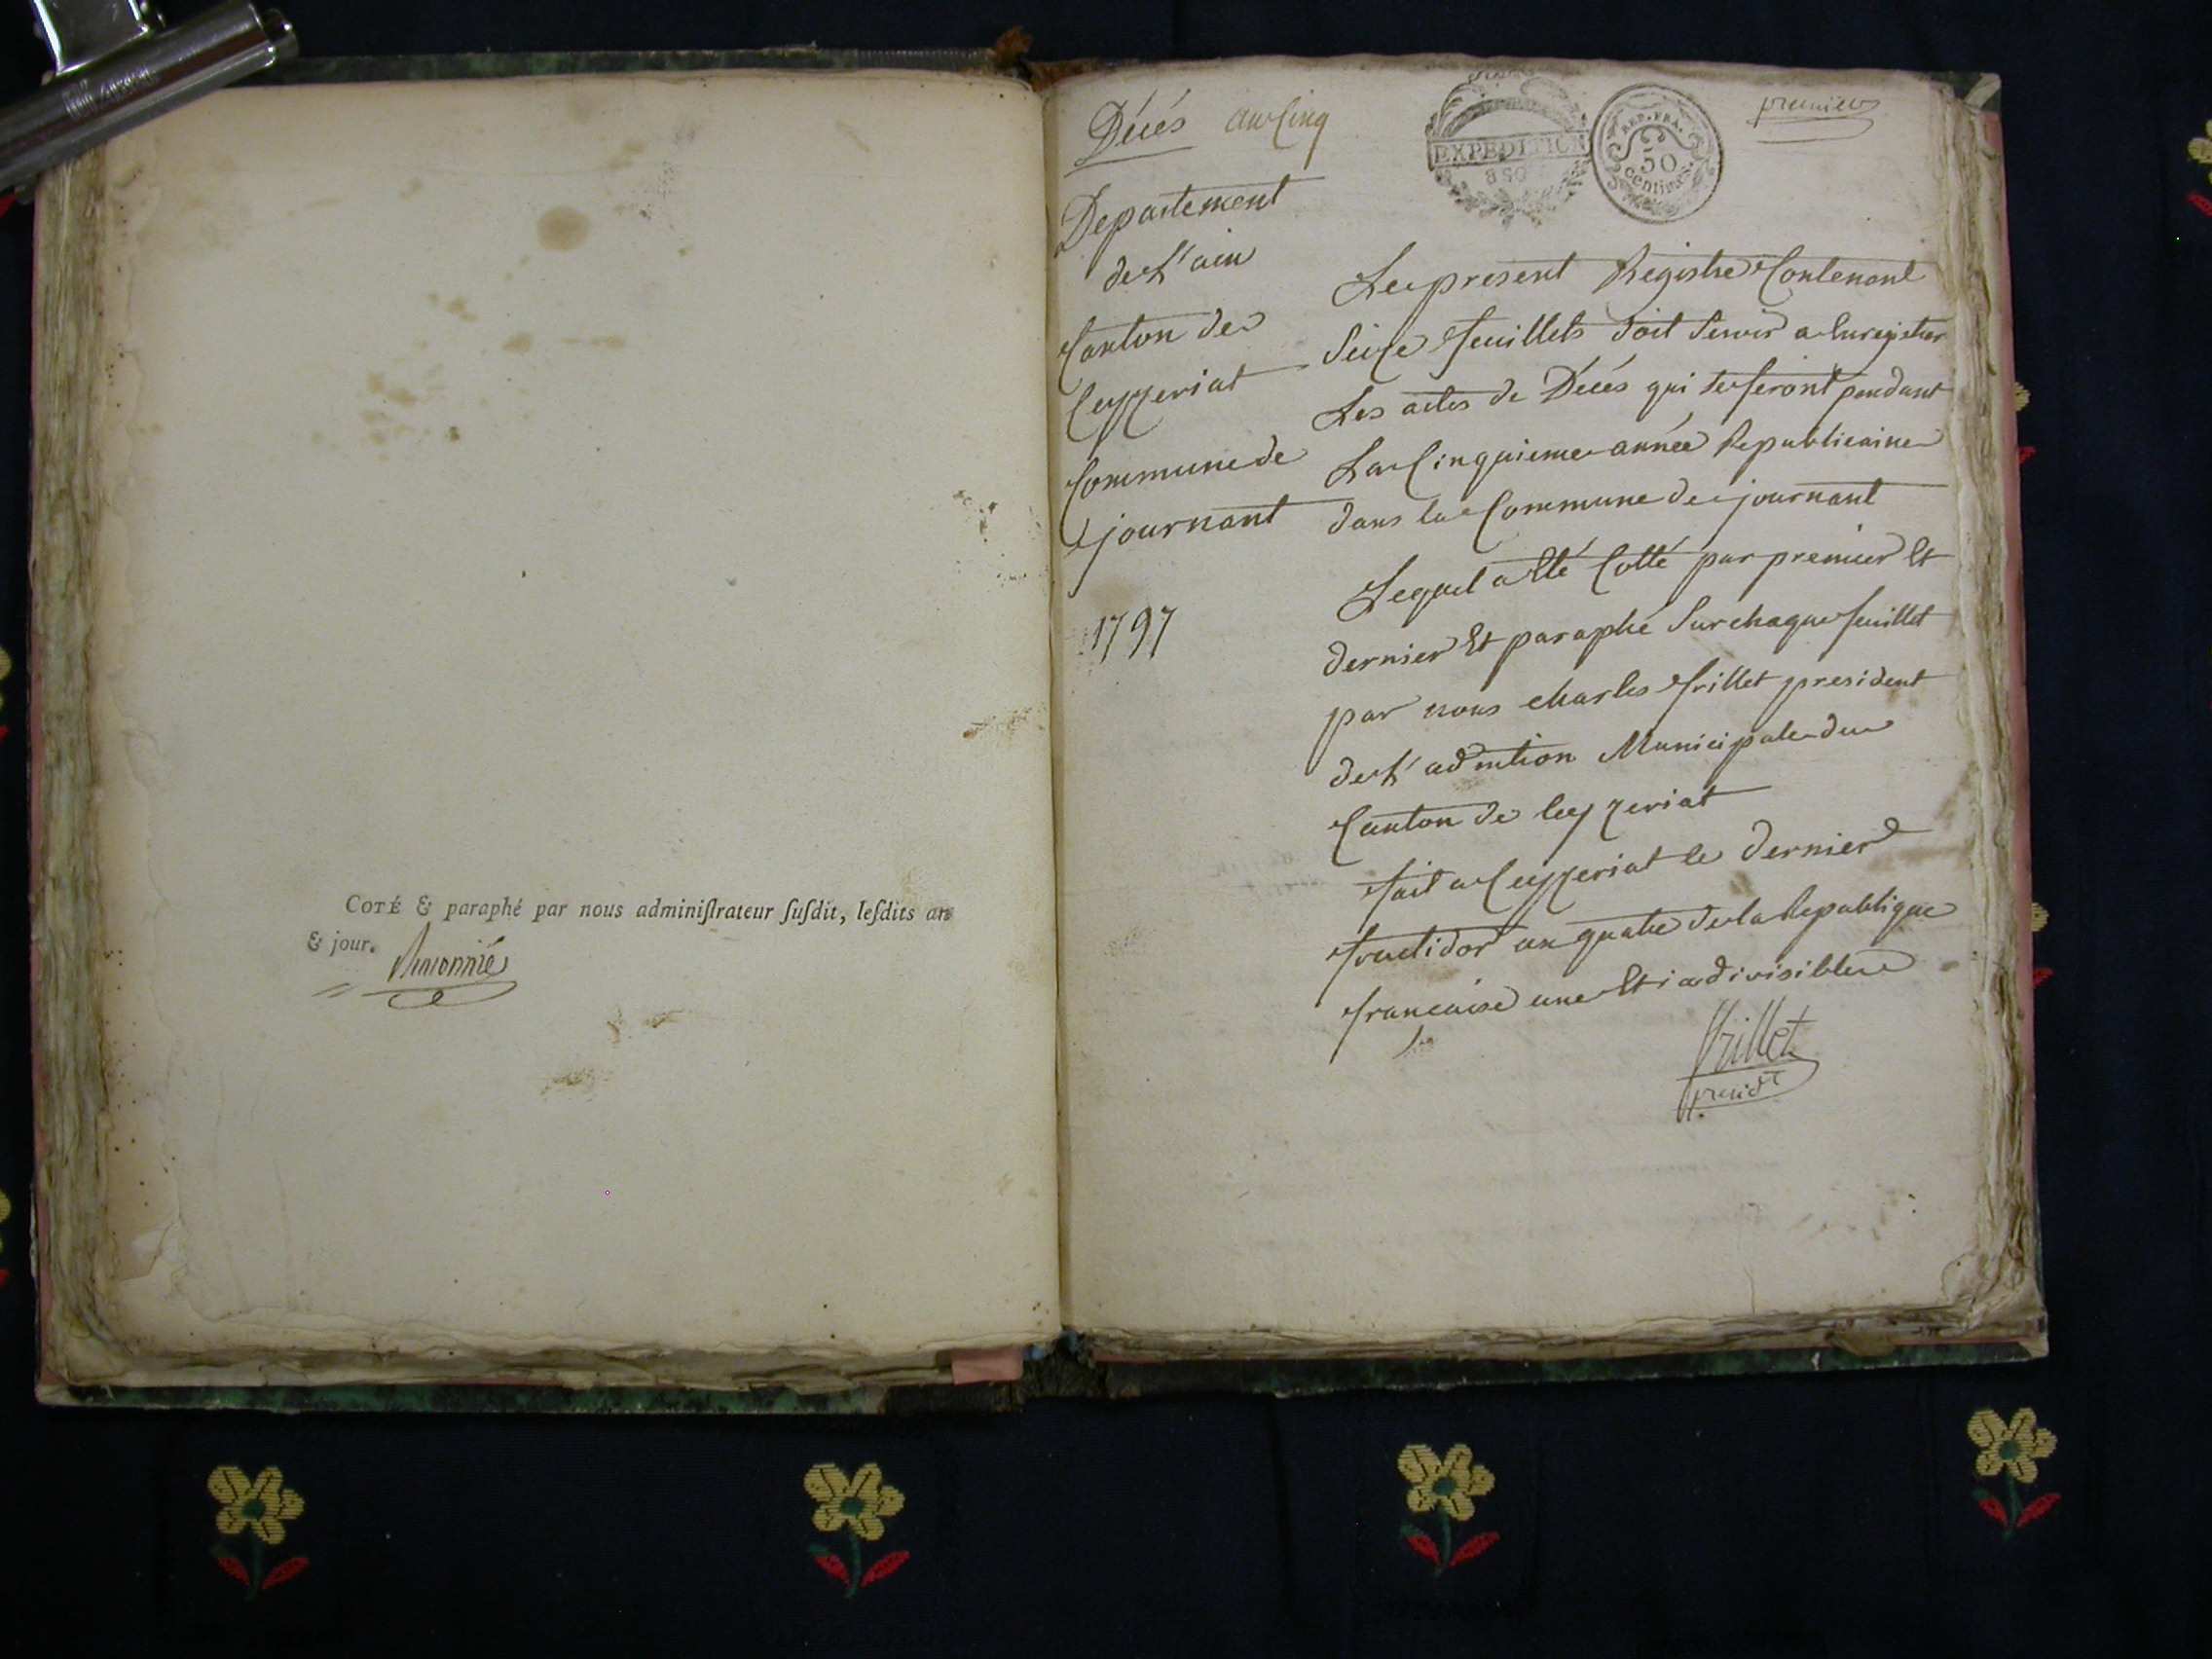 COTÉ & paraphé par nous adminiſtrateur ſuſdit, leſdits an
& jour.
Décés an Cinq
EXPEDITION
850
REP. FRA.
50
centimes.
premier
Departement
de L'ain
Canton de
Ceyzeriat
Commune de
journant
1797
Le present Registre Contenant
Seize feuillets doit Servir a Enregistrer
Les actes de Décés qui se feront pendant
La Cinquieme année Republicaine
dans la Commune de journant
Lequel a Eté Cotté par premier Et
dernier Et paraphé Sur chaque feuillet
par nous charles frillet president
de L'admtion Municipale du
Canton de Ceyzeriat
fait a Ceyzeriat le dernier
fructidor an quatre de la Republique
francaise une Et indivisible
frillet
presidt